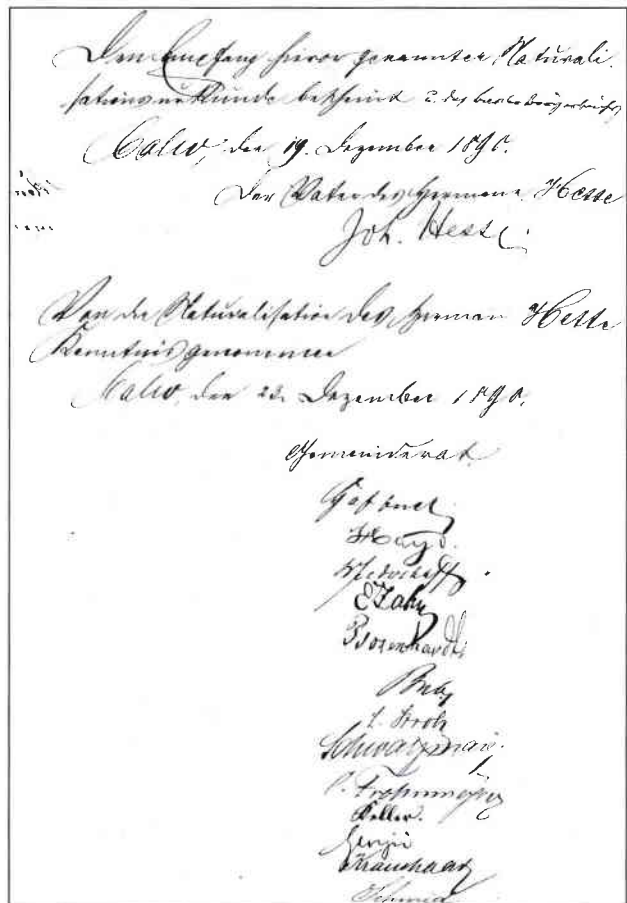 Den Empfang hievor genannter Naturali-
sationsurkunde bescheint u. des
Calw, den 19. Dezember 1890.
Der Vater des Hermann Hesse
Joh. Hesse
Von der Naturalisation des Herman Hesse
Kenntnis genommen
Calw, den 23. Dezember 1890.
Gemeinderat.
Haffner
Hayd.
E Zahn
Bozenhardt
Schwarzmaier
Keller.
Kraushaar
Schmid